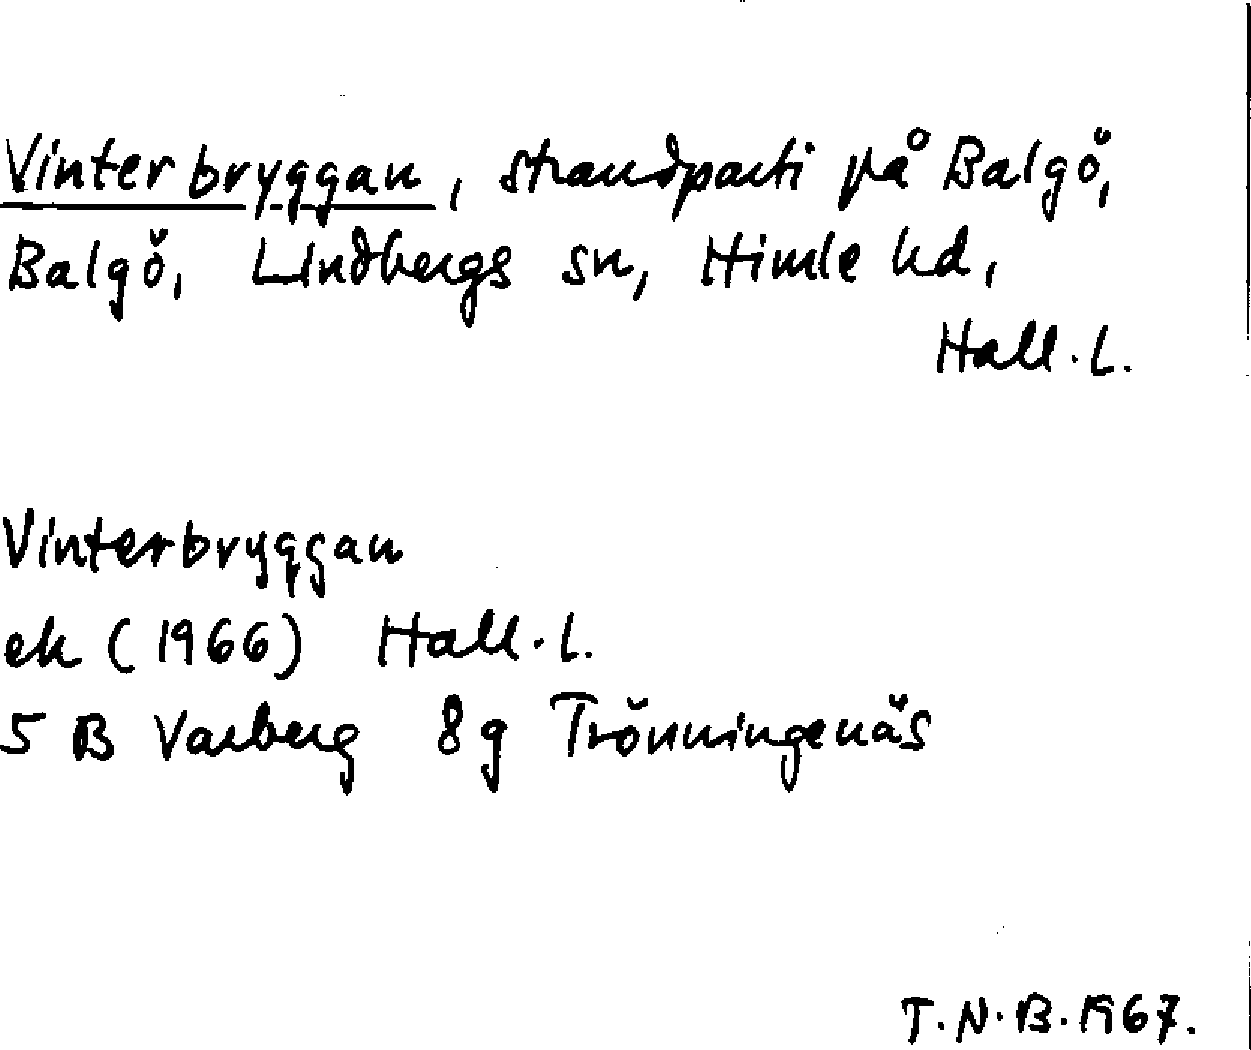 Vinterbryggan, strandparti på Balgö,
Balgö, Lindbergs sn, Himle hd,
Hall. L.
Vinterbryggan
ek (1966) Hall. L.
5 B Varberg 8 g Trönningenäs
T.N.B. 1967.